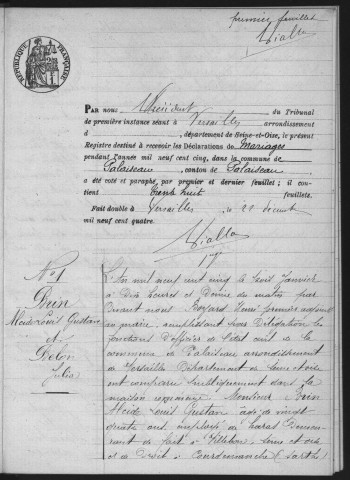 premier feuillet
Vialla
RÉPUBLIQUE FRANÇAISE
PAR nous Président du Tribunal
de première instance séant à Versailles arrondissement
d , département de Seine-et-Oise, le présent
Registre destiné à recevoir les Déclarations de Mariages
pendant l'année mil neuf cent cinq, dans la commune de
Palaiseau, canton de Palaiseau,
a été coté et paraphé, par premier et dernier feuillet; il con-
tient trente huit feuillets.
Fait double à Versailles, le 22 décembre
mil neuf cent quatre.
Vialla
N° 1
Brin
Alcide Louis Gustave
et
Belon
Julia
L'An mil neuf cent cinq le trois Janvier
à Dix heures et Demie du matin par
Devant nous Henri premier adjoint
au maire, remplissant par Délégation les
fonctions d'officier de l'état civil de la
commune de Palaiseau arrondissement
de Versailles Département de Seine et oise
ont comparu publiquement dans la
maison commune: Monsieur Brin
Alcide Louis Gustave âgé de vingt
quatre ans, employé de haras Demeu-
rant de fait à Villebon, Seine et oise
et de Droit à Courdemanche (Sarthe)